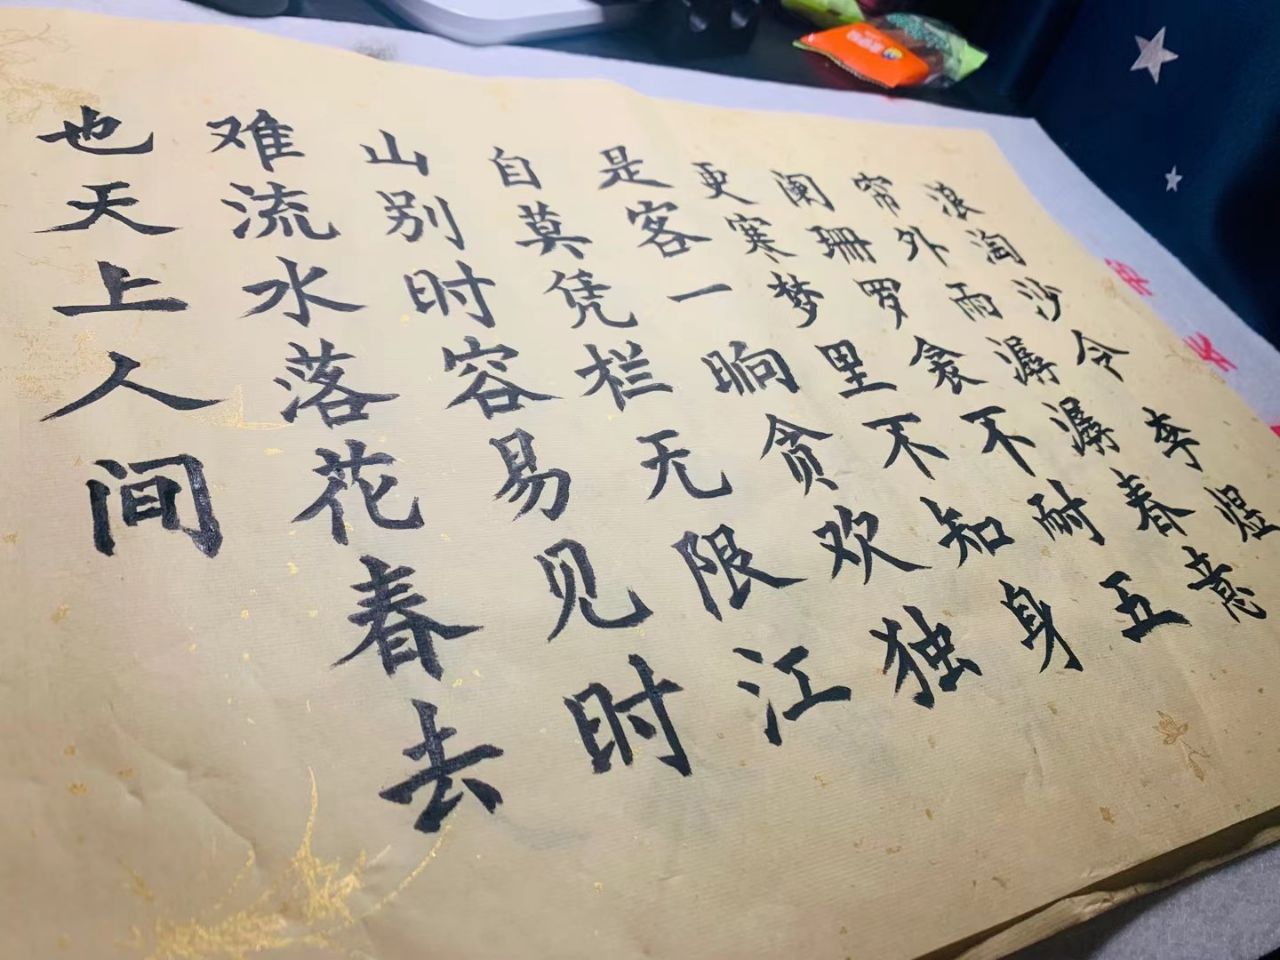 浪淘沙令李煜
帘外雨潺潺春意
阑珊罗衾不耐五
更寒梦里不知身
是客一晌贪欢独
自莫凭栏无限江
山别时容易见时
难流水落花春去
也天上人间